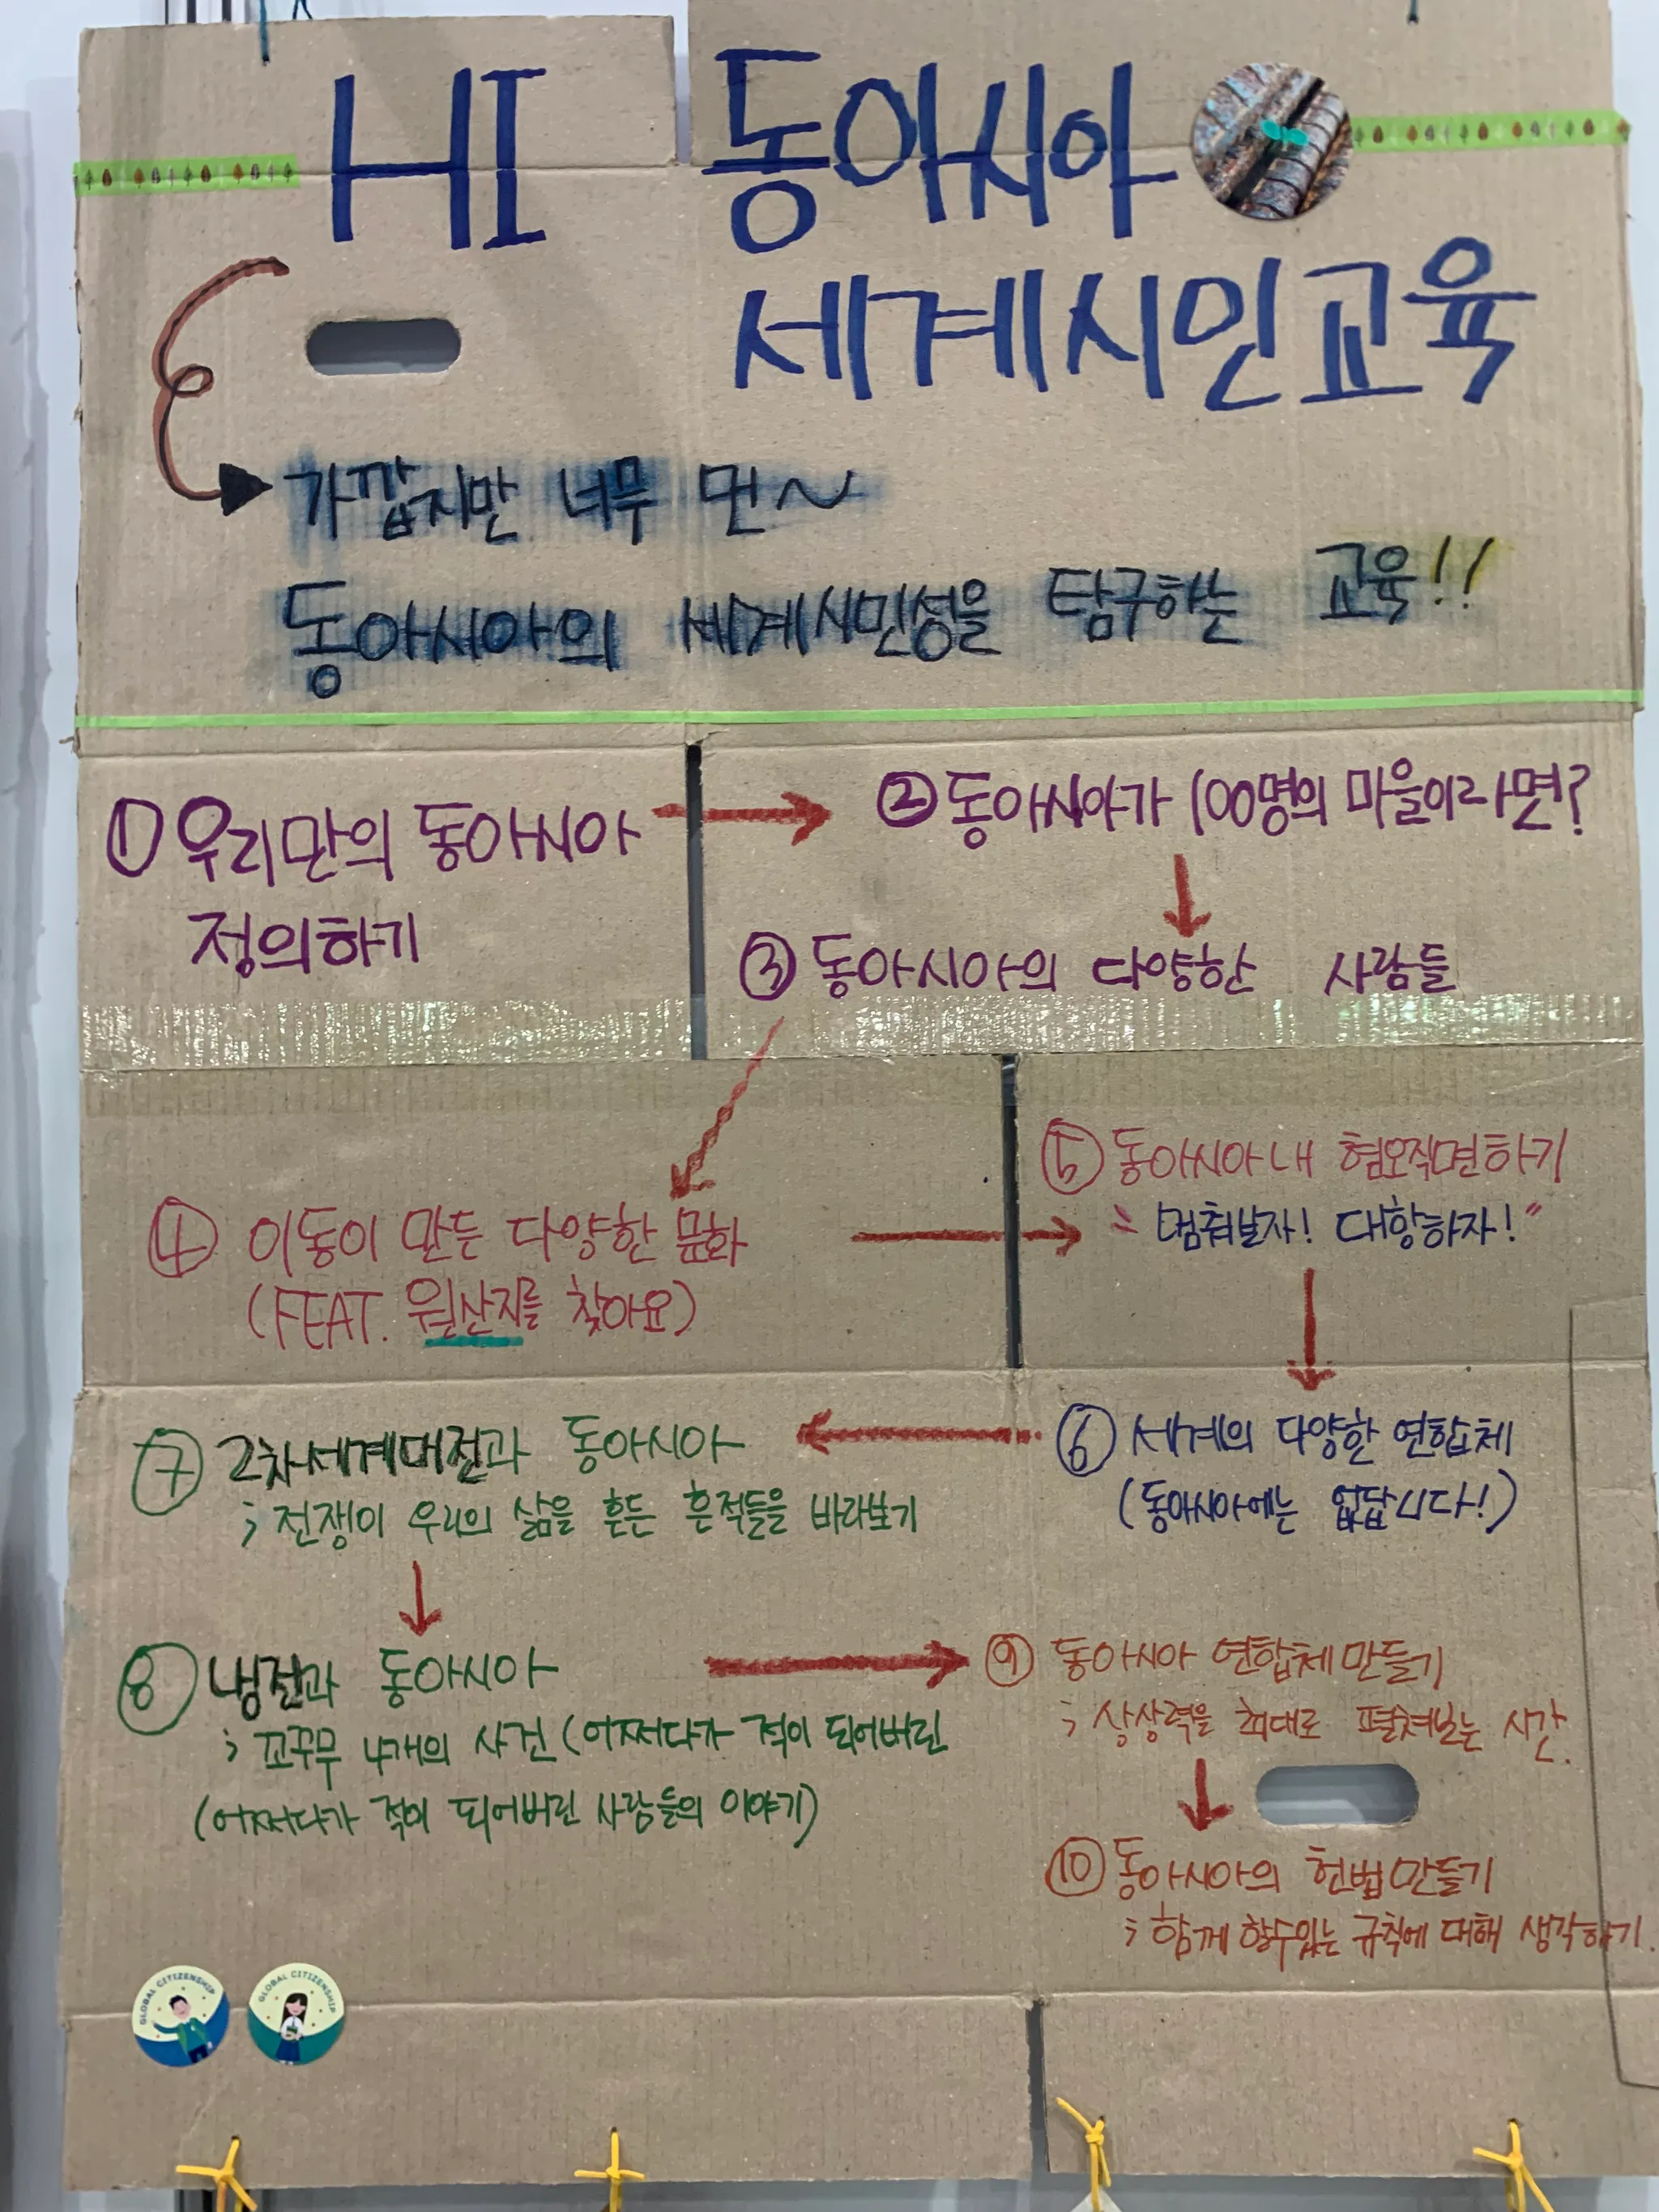 HI 동아시아
세계시민교육
가깝지만 너무 먼~
동아시아의 세계시민성을 탐구하는 교육!!
① 우리만의 동아시아
정의하기
② 동아시아가 100명의 마을이라면?
③ 동아시아의 다양한 사람들
④ 이동이 만든 다양한 문화
(FEAT. 원산지를 찾아요)
⑤ 동아시아 내 혐오직면하기
"멈춰보자! 대항하자!"
⑥ 세계의 다양한 연합체
(동아시아에는 없답니다!)
⑦ 2차세계대전과 동아시아
; 전쟁이 우리의 삶을 흔든 흔적들을 바라보기
⑧ 냉전과 동아시아
; 꼬꾸무 4개의 사건 (어쩌다가 적이 되어버린
(어쩌다가 적이 되어버린 사람들의 이야기)
⑨ 동아시아 연합체 만들기
; 상상력을 최대로 펼쳐보는 시간.
⑩ 동아시아의 헌법만들기
; 함께 할수있는 규칙에 대해 생각하기.
GLOBAL CITIZENSHIP
GLOBAL CITIZENSHIP